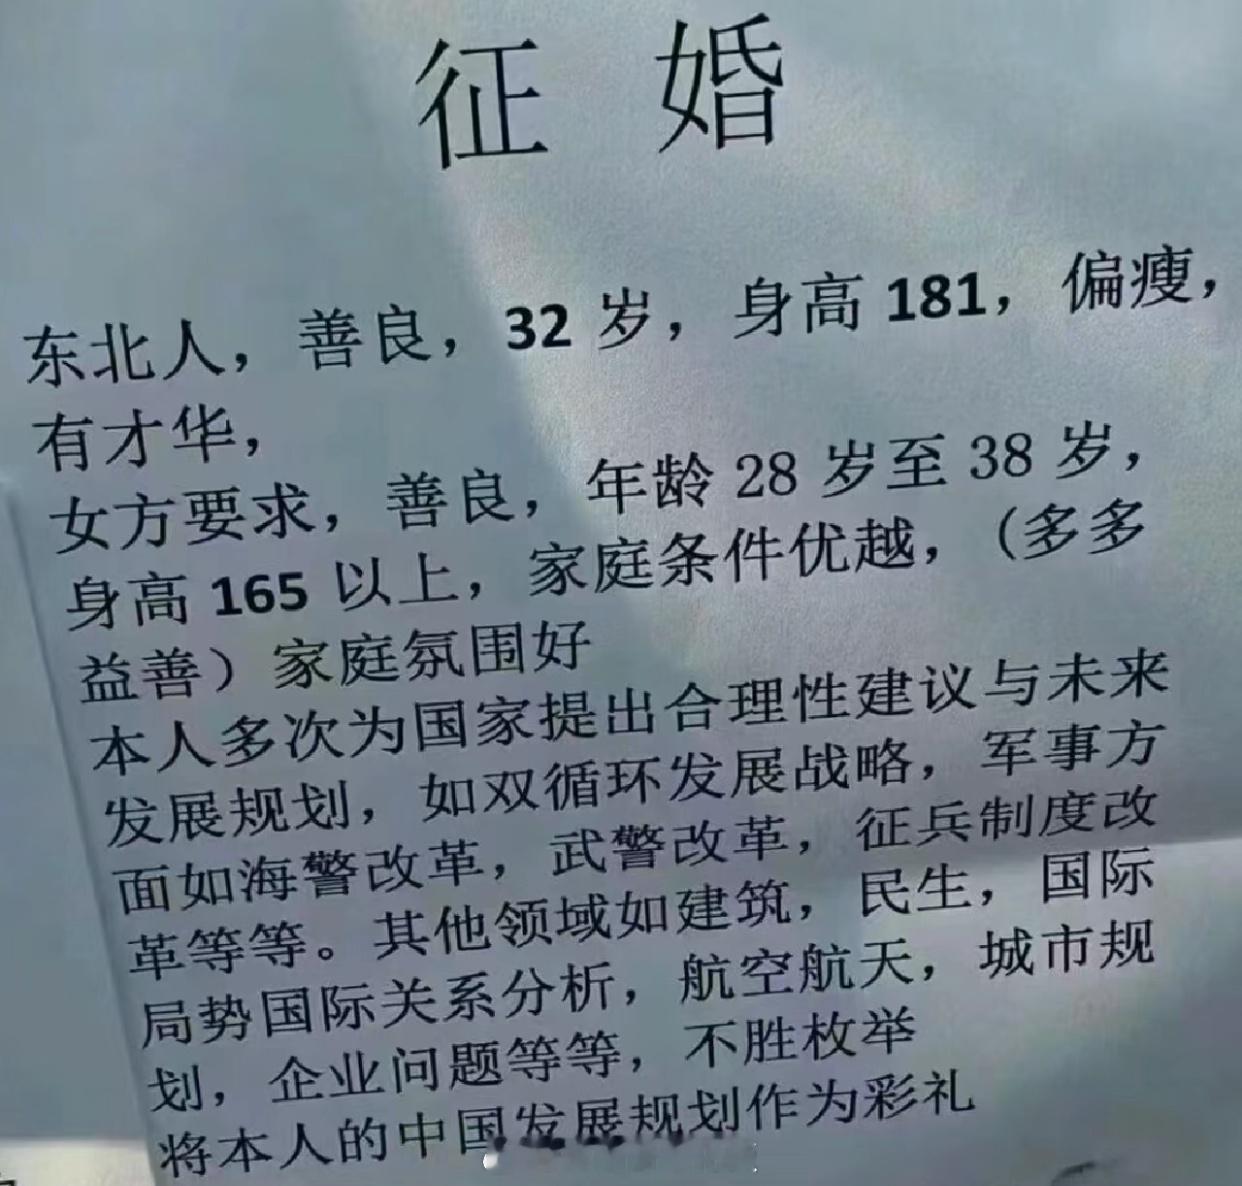 征 婚
东北人，善良，32 岁，身高 181，偏瘦，
有才华，
女方要求，善良，年龄 28 岁至 38 岁，
身高 165 以上，家庭条件优越，（多多
益善）家庭氛围好
本人多次为国家提出合理性建议与未来
发展规划，如双循环发展战略，军事方
面如海警改革，武警改革，征兵制度改
革等等。其他领域如建筑，民生，国际
局势国际关系分析，航空航天，城市规
划，企业问题等等，不胜枚举
将本人的中国发展规划作为彩礼